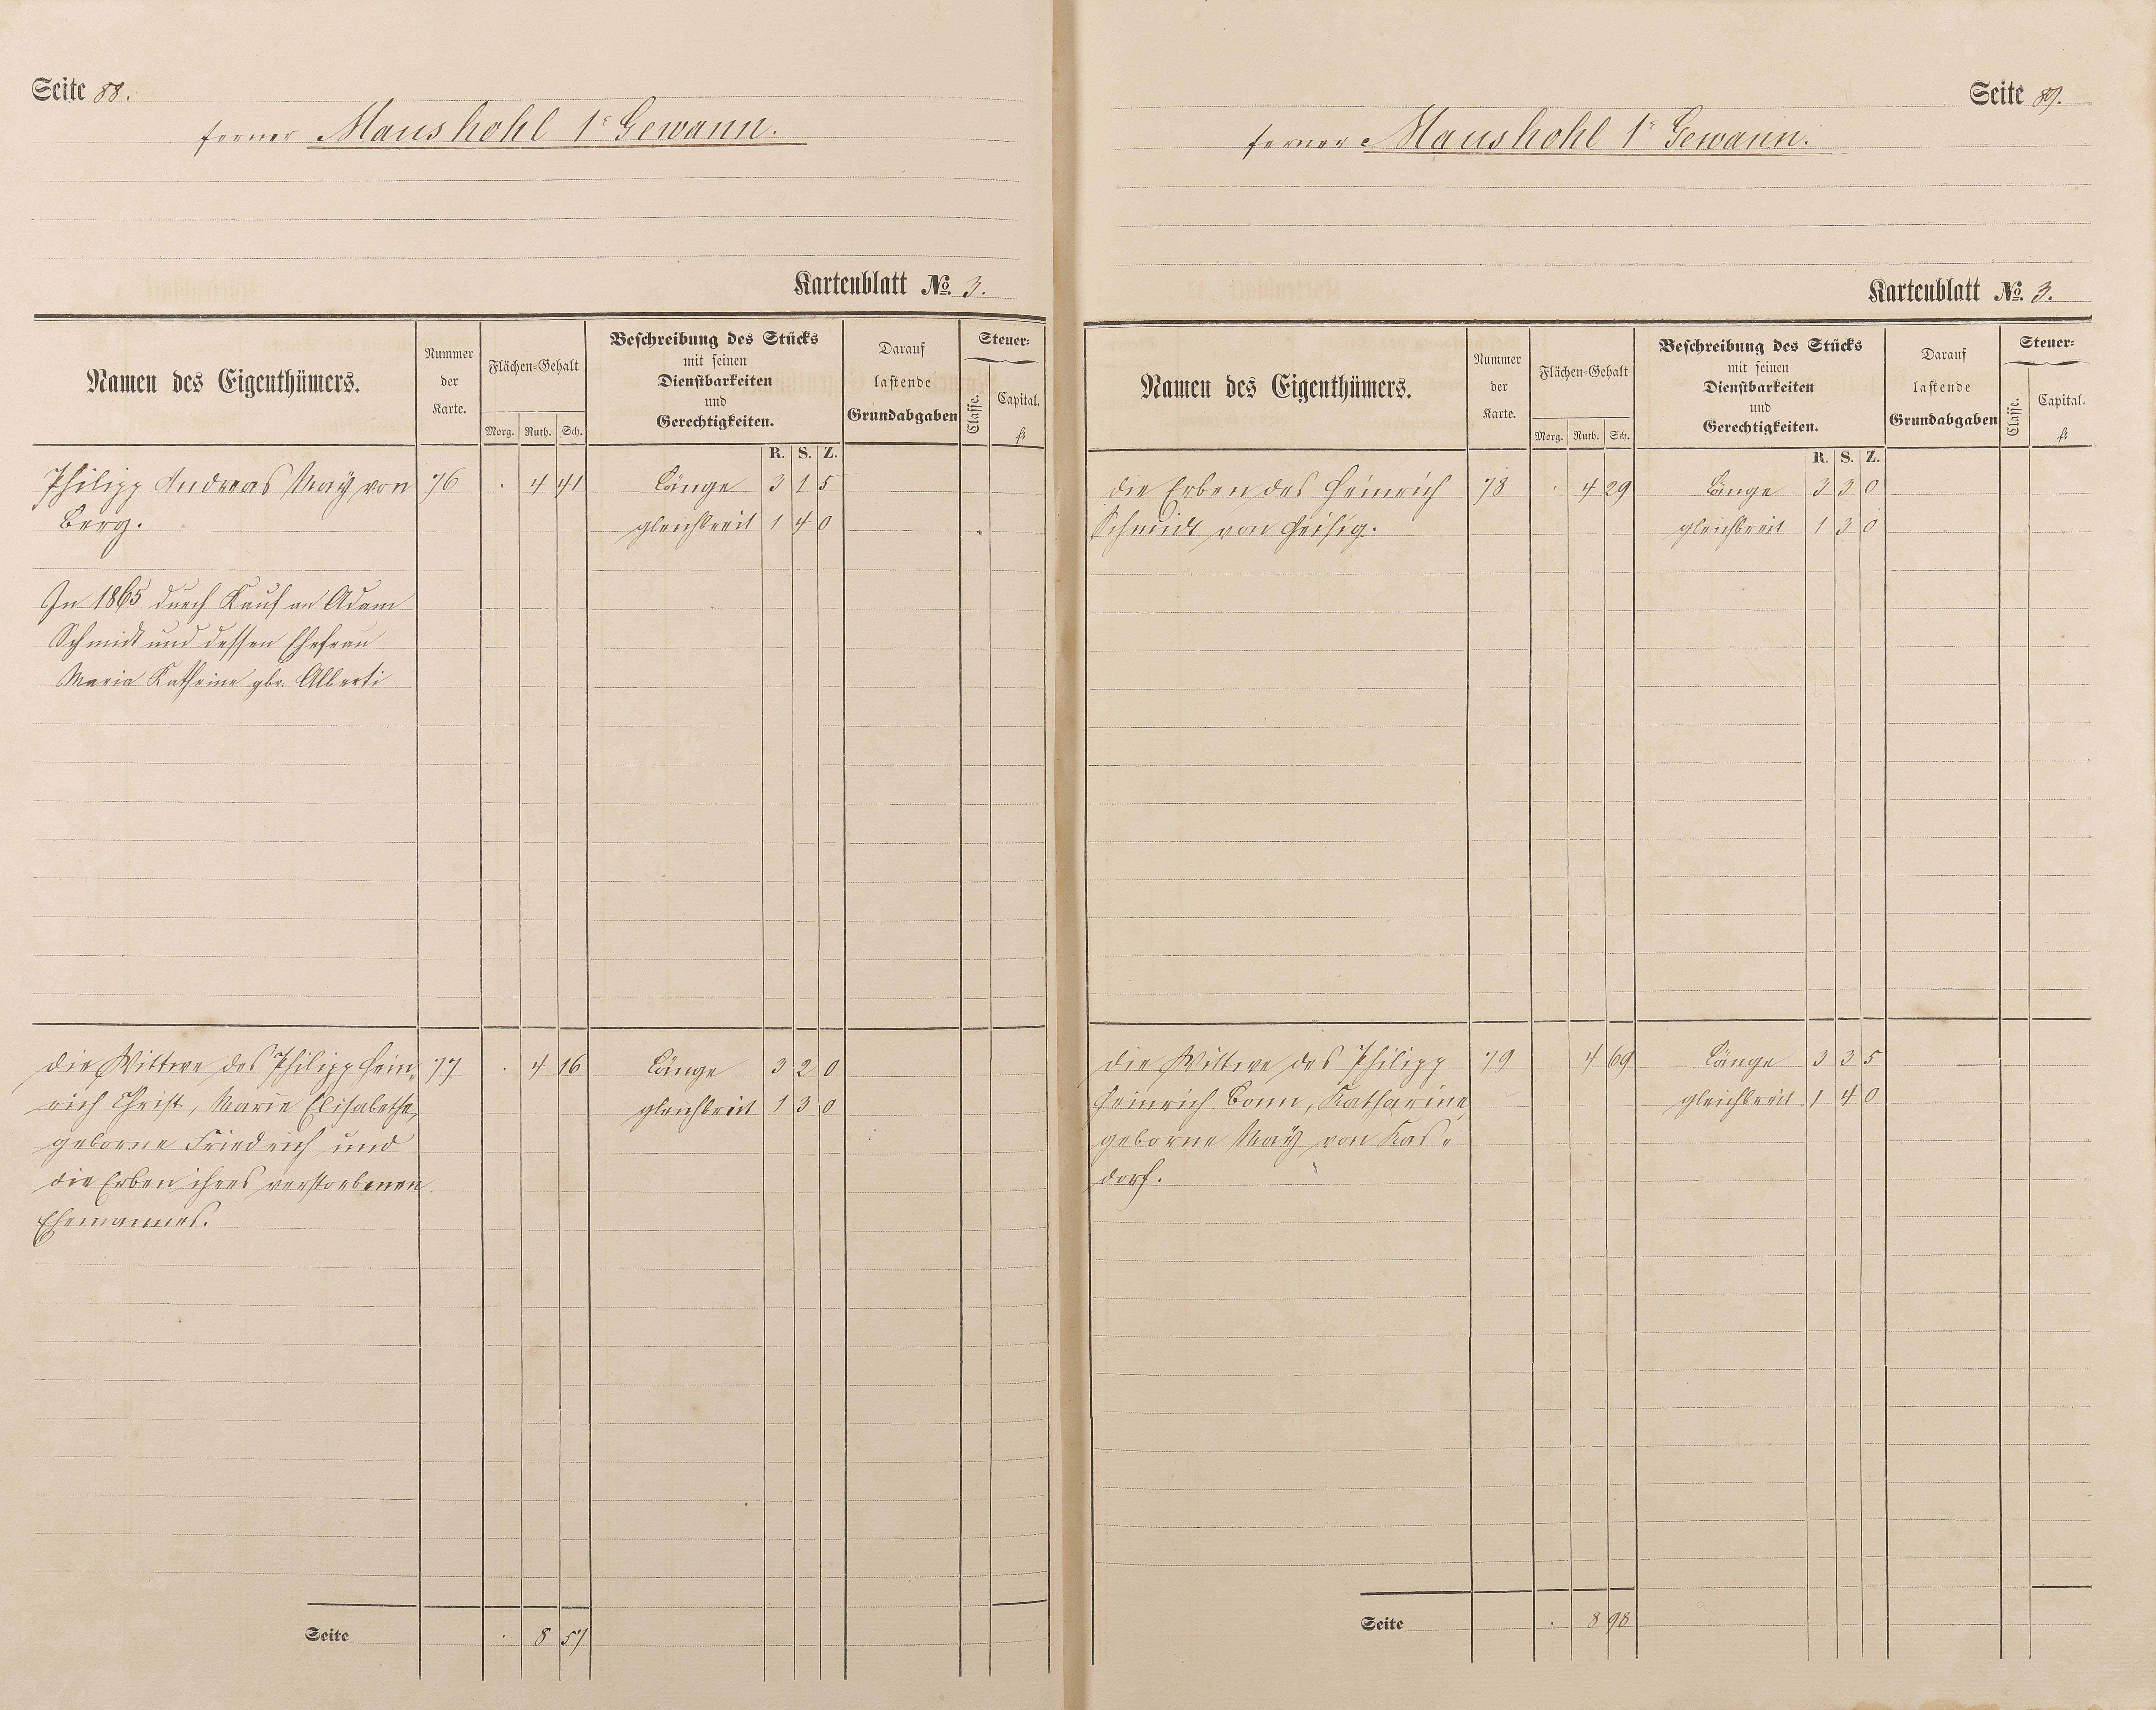 Seite 88.
ferner Maushohl 1r Gewann.
Kartenblatt No. 3.
Namen des Eigenthümers.
Nummer
der
Karte.
Flächen-Gehalt
Morg. Ruth. Sch.
Beschreibung des Stücks
mit seinen
Dienstbarkeiten
und
Gerechtigkeiten.
Darauf
lastende
Grundabgaben
Steuer-
Classe.
Capital.
fl.
R. S. Z.
Philipp Andreas Maÿ von 76 . 4 41 Länge 3 1 5
Berg. gleichbreit 1 4 0
In 1865 durch Kauf an Adam
Schmidt und dessen Ehefrau
Maria Kathrine gbr. Alberti
die Wittwe des Philipp Hein- 77. . 4 16 Länge 3 2 0
rich Christ, Marie Elisabethe, gleichbreit 1 3 0
geborne Friedrich und
die Erben ihres verstorbenen
Ehemannes.
Seite . 8 57
Seite 89.
ferner Maushohl 1r Gewann.
Kartenblatt No. 3.
Namen des Eigenthümers.
Nummer
der
Karte.
Flächen-Gehalt
Morg. Ruth. Sch.
Beschreibung des Stücks
mit seinen
Dienstbarkeiten
und
Gerechtigkeiten.
Darauf
lastende
Grundabgaben
Steuer-
Classe.
Capital.
fl.
R. S. Z.
die Erben des Heinrich 78 . 4 29 Länge 3 3 0
Schmidt von Geisig. gleichbreit 1 3 0
die Wittwe des Philipp 79 4 69 Länge 3 3 5
Heinrich Bonn, Katharine, gleichbreit 1 4 0
geborne Maÿ von Kas-
dorf.
Seite . 8 98